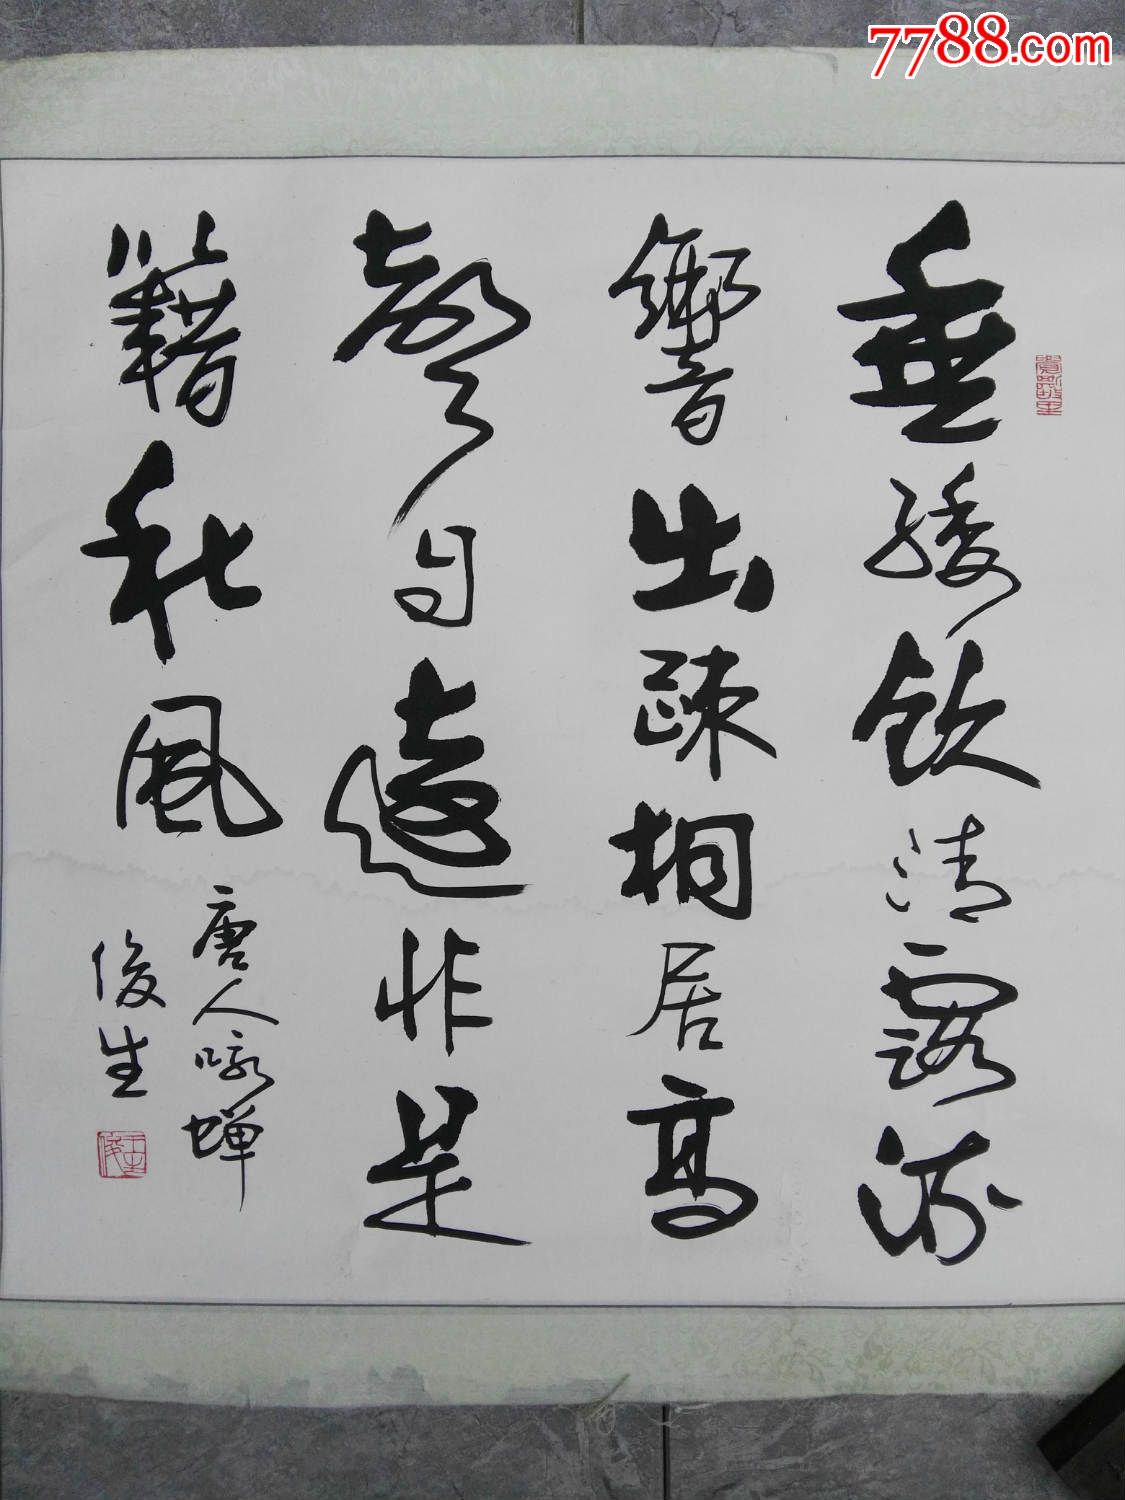 垂緌飲清露流
響出疎桐居高
聲自遠非是
籍秋風
唐人咏蝉
俊生
7788.com